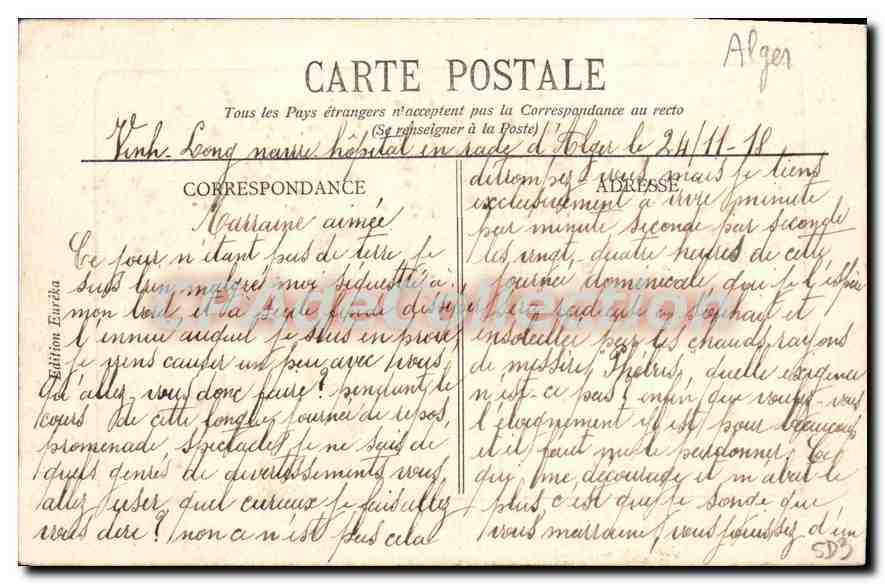 Alger
CARTE POSTALE
Tous les Pays étrangers n'acceptent pas la Correspondance au recto
(Se renseigner à la Poste)
Vinh-Long navire hôpital en rade d'Alger le 24/11-18
CORRESPONDANCE
Marraine aimée
Ce jour n'étant pas de terre je
suis bien malgré moi séquestré à
mon bord, et la
l'ennui auquel je suis en proie
je viens causer un peu avec vous
qu'allez vous donc faire? pendant le
cours de cette longue journée de repos,
promenade, spectacles je ne sais de
quels genres de divertissements vous
allez user, quel curieux je fais allez
vous dire? non ce n'est pas cela
ADRESSE
détrompez-vous, mais je tiens
exclusivement à vivre minute
par minute seconde par seconde
les vingt-quatre heures de cette
journée dominicale que je l'espère
sera radieuse à souhait et
ensoleillée par les chauds rayons
de messire "Phébus, quelle exigence
n'est-ce pas? enfin que voulez-vous
l'éloignement y est pour beaucoup
et il faut me le pardonner. Ce
qui me décourage et m'abat le
plus, c'est que je songe que
vous marraine, vous jouissez d'un
Edition Euréka
CPAdeCollection
SD3